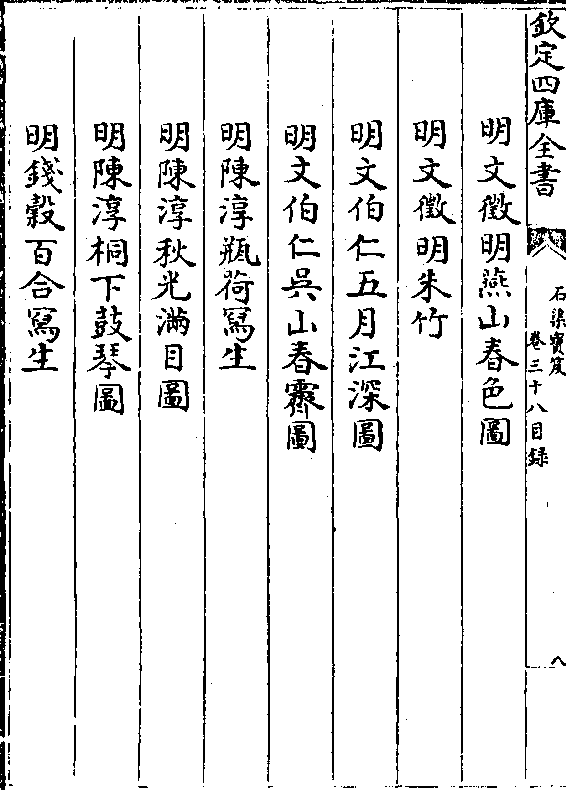 欽定四庫全書
石渠寳笈
卷三十八目録
八
明文徵明燕山春色圖
明文徵明朱竹
明文伯仁五月江深圖
明文伯仁吳山春霽圖
明陳淳瓶荷寫生
明陳淳秋光滿目圖
明陳淳桐下鼓琴圖
明錢榖百合寫生